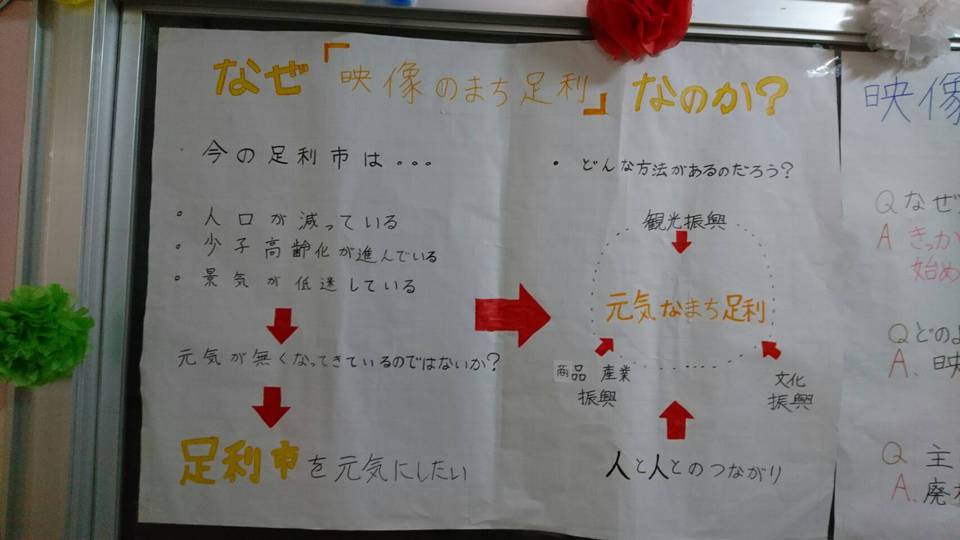 なぜ「映像のまち足利」なのか?
今の足利市は...
・人口が減っている
・少子高齢化が進んでいる
・景気が低迷している
元気が無くなってきているのではないか?
足利市を元気にしたい
・どんな方法があるのだろう?
観光振興
元気なまち足利
商品 産業
振興
文化
振興
人と人とのつながり
映像
Q なぜ
A きっか
始め
Q どのよ
A. 映
Q 主
A. 廃